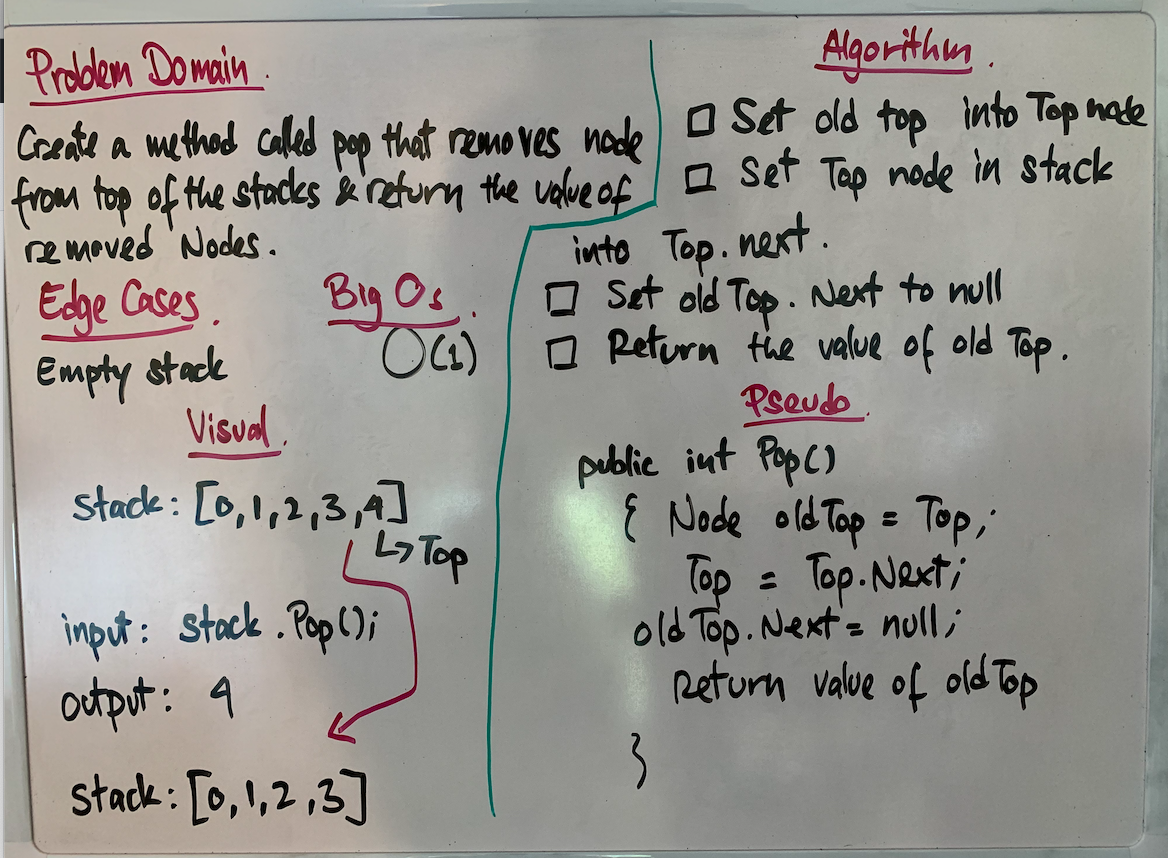 Problem Domain.
Create a method called pop that removes node
from top of the stacks & return the value of
removed Nodes.
Edge Cases.
Empty stack
Big Os.
O(1)
Visual.
Stack: [0,1,2,3,4]
↳ Top
input: stack.Pop();
output: 4
stack: [0,1,2,3]
Algorithm.
□ Set old top into Top node
□ Set Top node in stack
into Top.next.
□ Set old Top.Next to null
□ Return the value of old Top.
Pseudo.
public int Pop()
{ Node oldTop = Top;
Top = Top.Next;
oldTop.Next = null;
Return value of oldTop
}